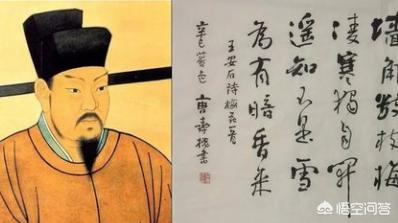 墙角数枝梅
凌寒独自开
遥知不是雪
为有暗香来
王安石诗梅花一首
辛巳
书
悟空问答